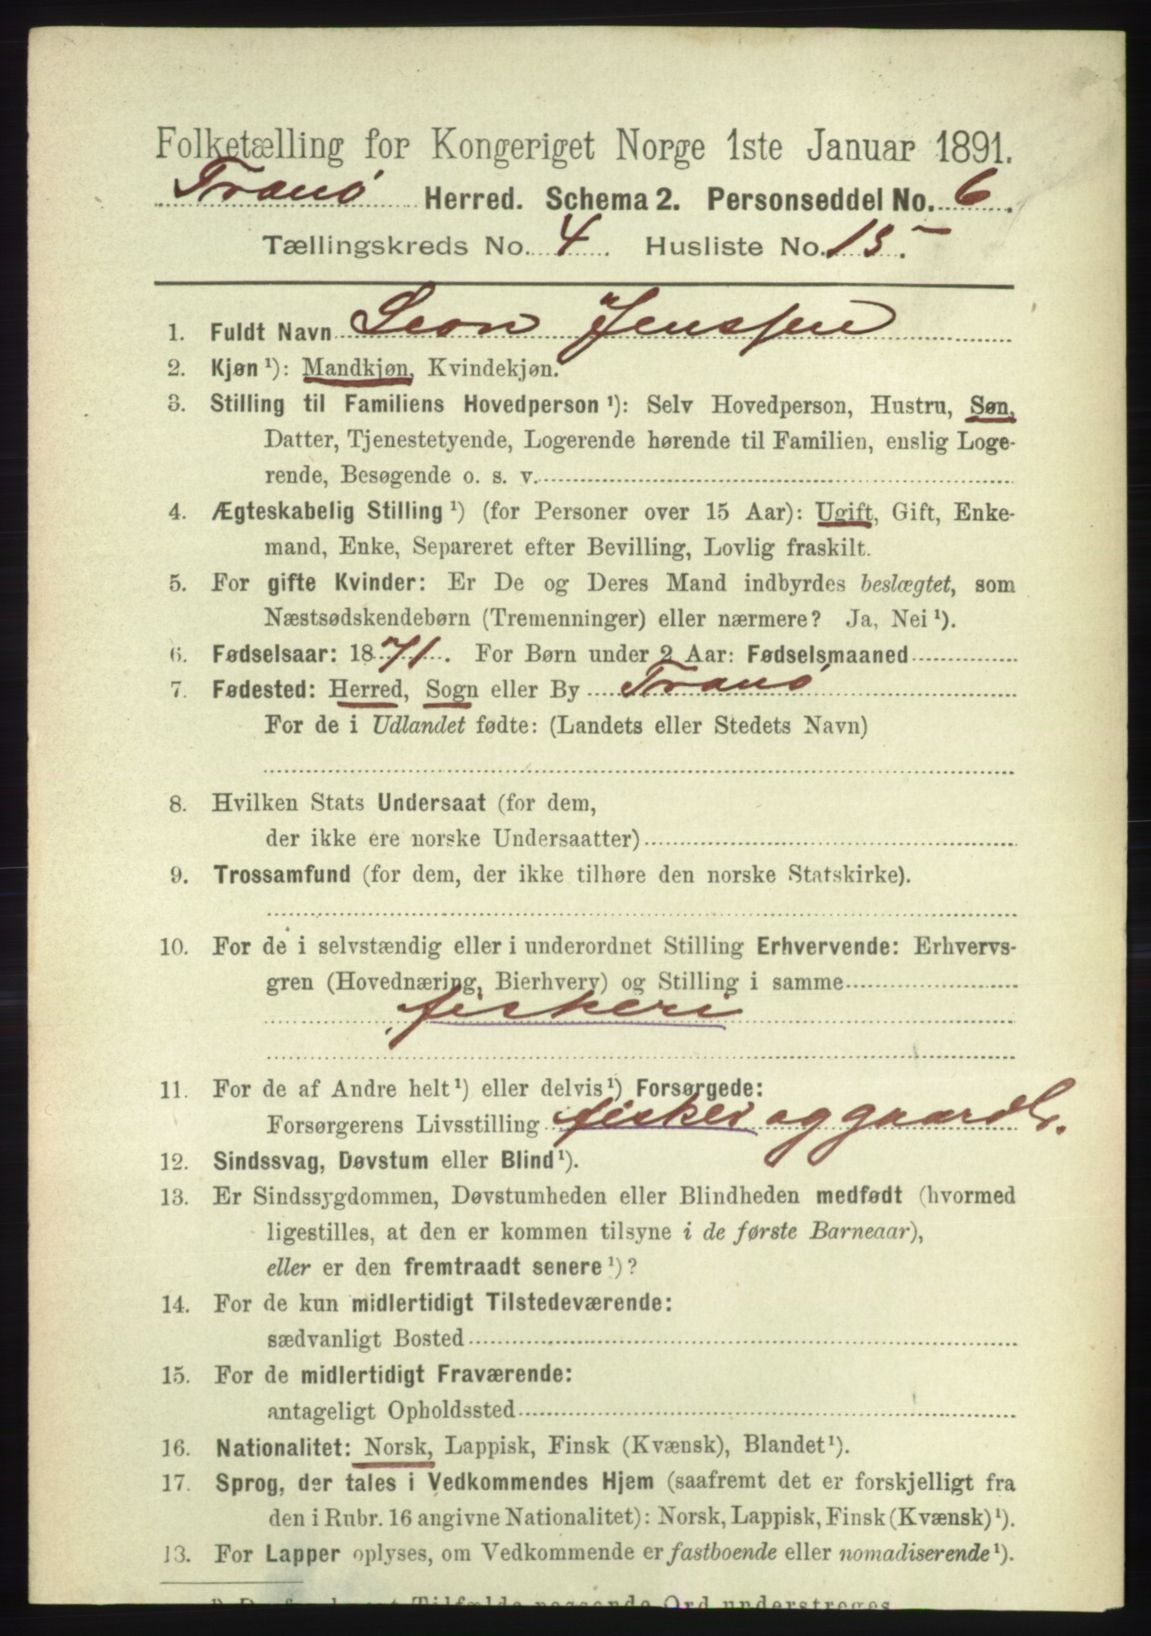 Folketælling for Kongeriget Norge 1ste Januar 1891.
Tranø Herred. Schema 2. Personseddel No. 6.
Tællingskreds No. 4. Husliste No. 15.
1. Fuldt Navn Leon Jenssen
2. Kjøn ¹): Mandkjøn, Kvindekjøn.
3. Stilling til Familiens Hovedperson ¹): Selv Hovedperson, Hustru, Søn,
Datter, Tjenestetyende, Logerende hørende til Familien, enslig Loge-
rende, Besøgende o. s. v.
4. Ægteskabelig Stilling ¹) (for Personer over 15 Aar): Ugift, Gift, Enke-
mand, Enke, Separeret efter Bevilling, Lovlig fraskilt.
5. For gifte Kvinder: Er De og Deres Mand indbyrdes beslægtet, som
Næstsødskendebørn (Tremenninger) eller nærmere? Ja, Nei ¹).
6. Fødselsaar: 1871. For Børn under 2 Aar: Fødselsmaaned
7. Fødested: Herred, Sogn eller By Tranø
For de i Udlandet fødte: (Landets eller Stedets Navn)
8. Hvilken Stats Undersaat (for dem,
der ikke ere norske Undersaatter)
9. Trossamfund (for dem, der ikke tilhøre den norske Statskirke).
10. For de i selvstændig eller i underordnet Stilling Erhvervende: Erhvervs-
gren (Hovednæring, Bierhverv) og Stilling i samme
fiskeri
11. For de af Andre helt ¹) eller delvis ¹) Forsørgede:
Forsørgerens Livsstilling fisker og gaardbr.
12. Sindssvag, Døvstum eller Blind ¹).
13. Er Sindssygdommen, Døvstumheden eller Blindheden medfødt (hvormed
ligestilles, at den er kommen tilsyne i de første Barneaar),
eller er den fremtraadt senere ¹)?
14. For de kun midlertidigt Tilstedeværende:
sædvanligt Bosted
15. For de midlertidigt Fraværende:
antageligt Opholdssted
16. Nationalitet: Norsk, Lappisk, Finsk (Kvænsk), Blandet ¹).
17. Sprog, der tales i Vedkommendes Hjem (saafremt det er forskjelligt fra
den i Rubr. 16 angivne Nationalitet): Norsk, Lappisk, Finsk (Kvænsk) ¹).
13. For Lapper oplyses, om Vedkommende er fastboende eller nomadiserende ¹).
Tilfælde passende Ord understreges